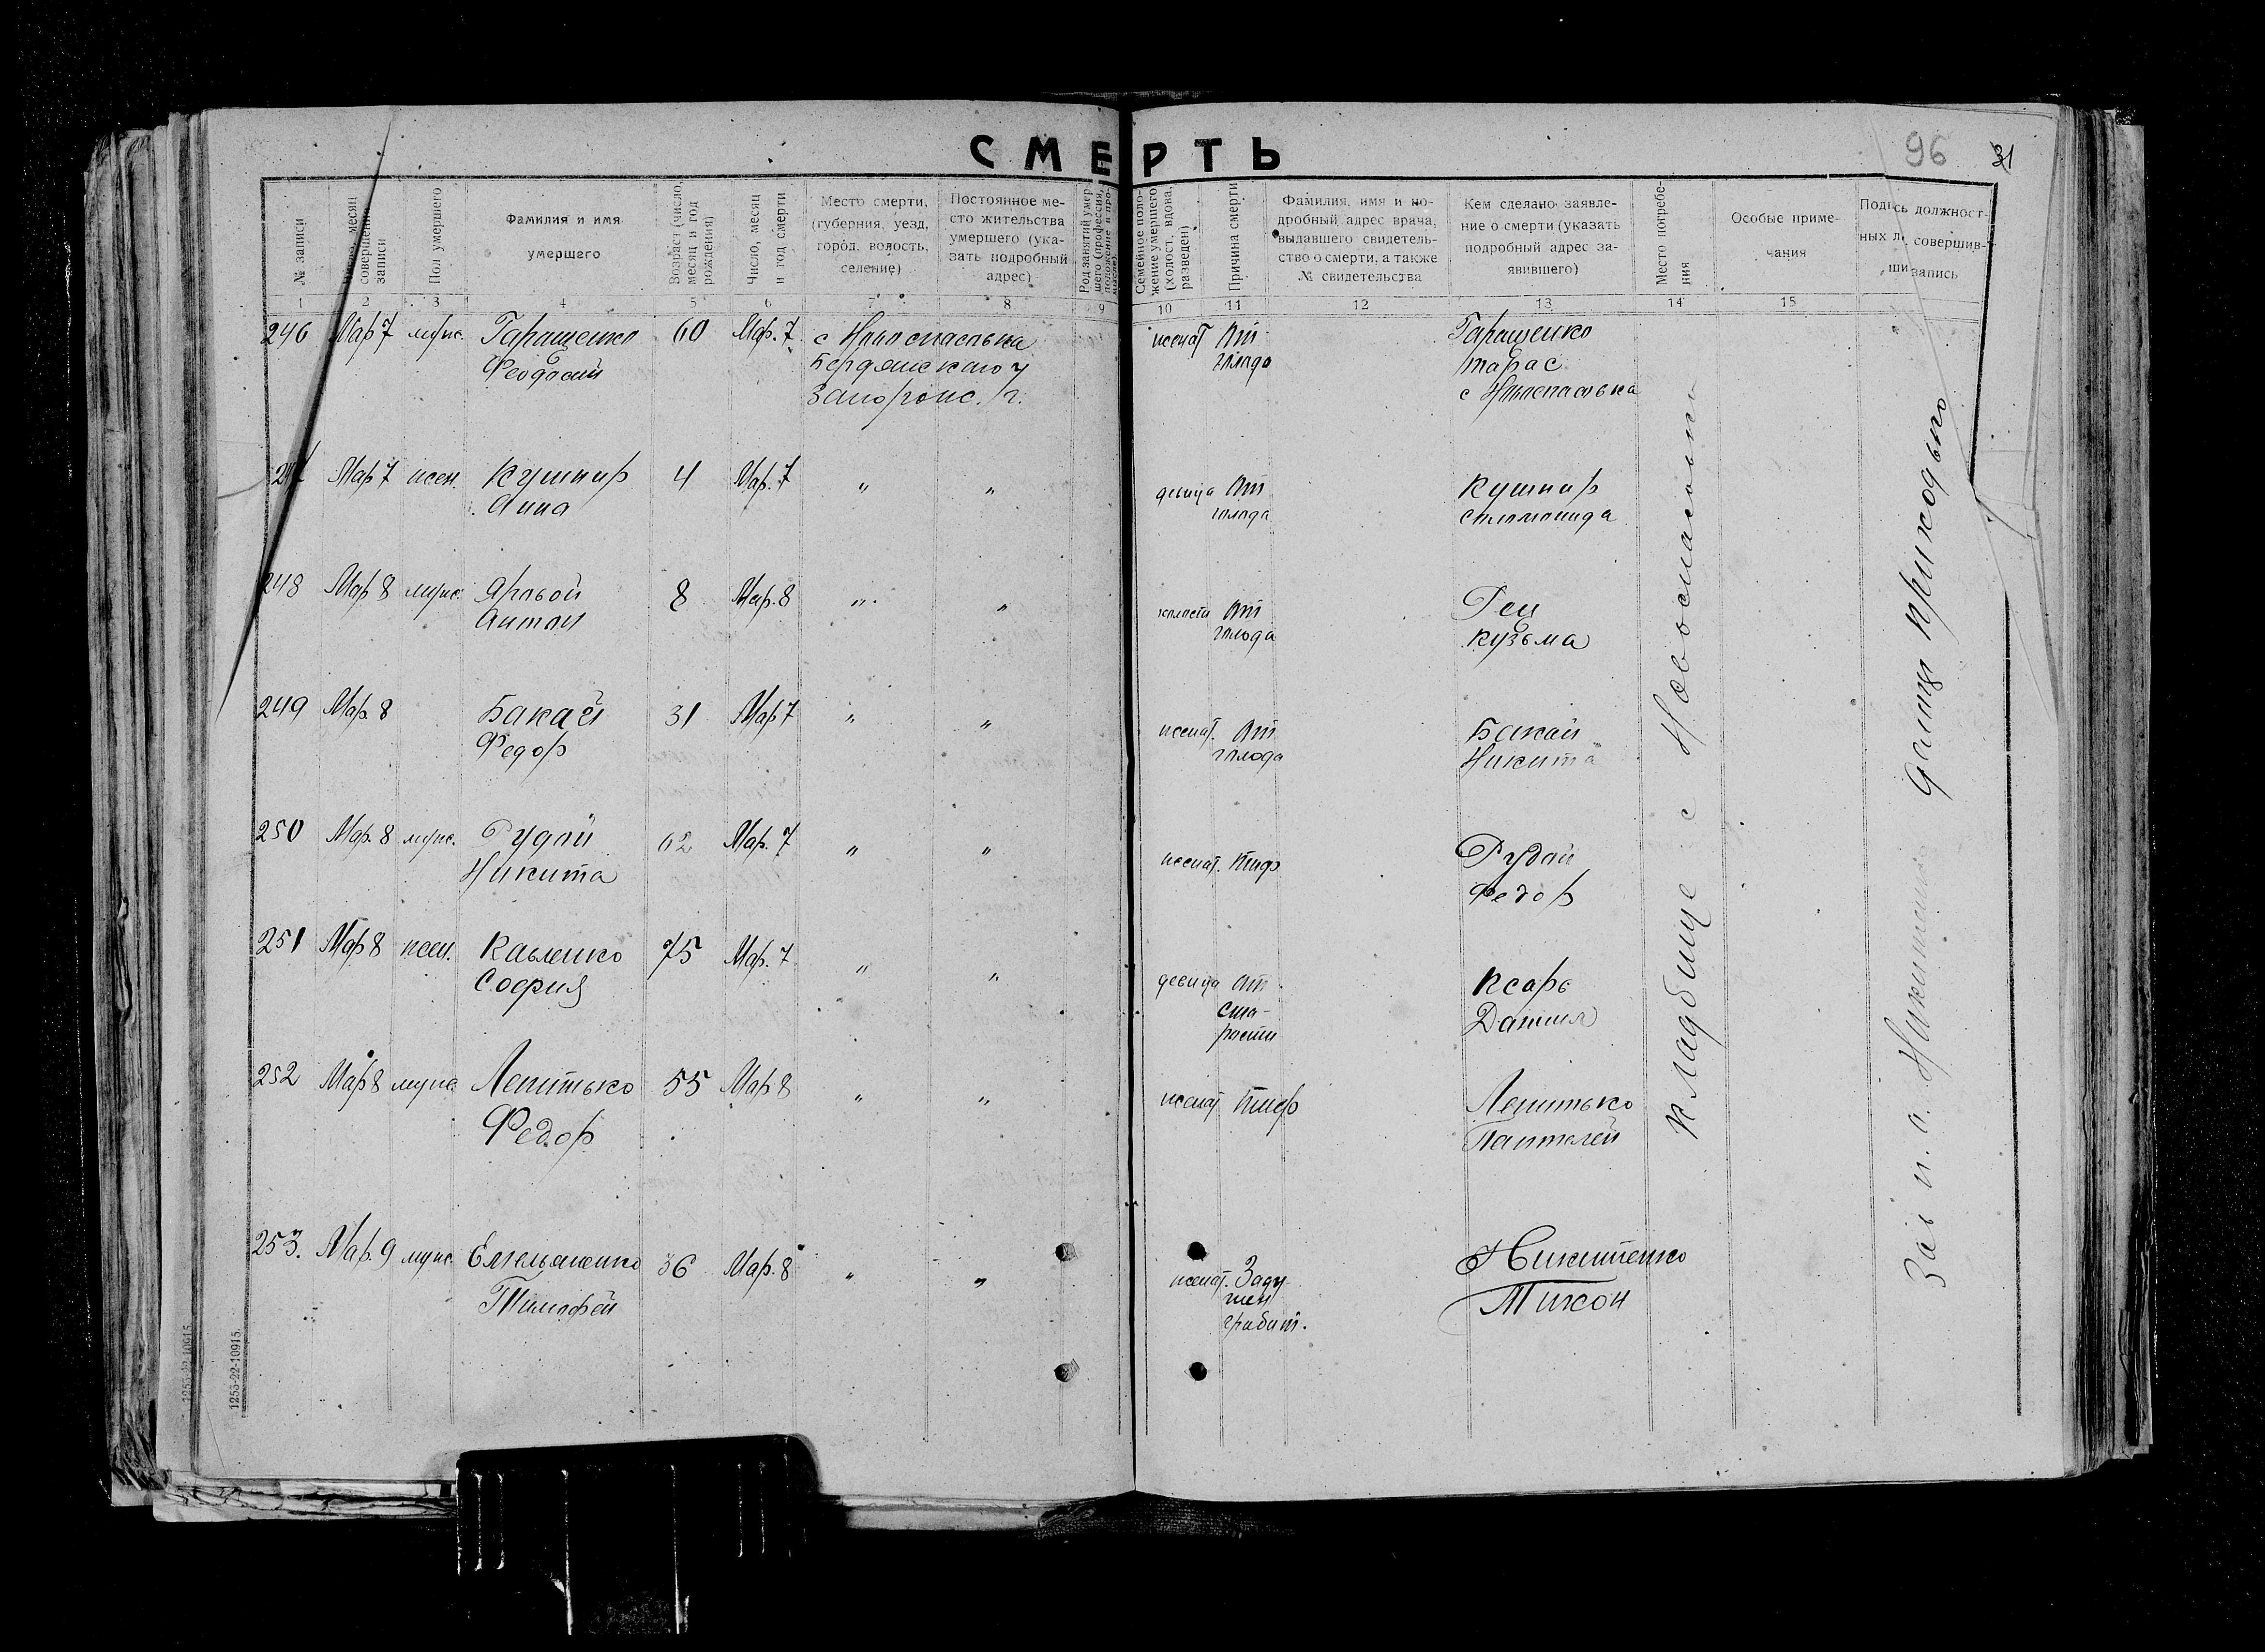 СМЕРТЬ
96
31
№ записи
Число, месяц совершения записи
Пол умершего
Фамилия и имя умершего
Возраст (число, месяц и год рождения)
Число, месяц и год смерти
Место смерти, (губерния, уезд, город, волость, селение)
Постоянное место жительства умершего (указать подробный адрес)
Род занятий умершего (профессия, положение в промысле)
Семейное положение умершего (холост, вдова, разведен)
Причина смерти
Фамилия, имя и подробный адрес врача, выдавшего свидетельство о смерти, а также № свидетельства
Кем сделано заявление о смерти (указать подробный адрес заявившего)
Место погребения
Особые примечания
Подпись должностных л. совершивши запись
1 2 3 4 5 6 7 8 9 10 11 12 13 14 15
246 Мар 7 муж. Гаращенко 60 Мар. 7 с Новоспасовка женат От Гаращенко
Феодосий Бердянского у голода Тарас
Запорож. г. с Новоспасовка
247 Мар 7 жен. Кушнир 4 Мар. 7 " " девица От Кушнир
Анна голода Соломонида
248 Мар 8 муж. Яровой 8 Мар. 8 " " холост От Ген
Антон голода Кузьма
249 Мар. 8 Бакай 31 Мар 7 " " женат. От Бакай
Федор голода Никита
250 Мар. 8 муж. Рудой 62 Мар. 7 " " женат. тиф Рудой
Никита Федор
251 Мар 8 жен. Кавленко 75 Мар. 7 " " девица От Ксарь
София ста- Данил
рости
252 Мар 8 муж. Лепитько 55 Мар 8 " " женат тиф Лепитько
Федор Пантелей
253. Мар. 9 муж. Емельяненко 36 Мар. 8 " " женат. Заду- Никитенко
Тимофей шен Тихон
грабит.
Кладбище с Новоспасовки
Зав п. о. Никитенко
1255-22-10915
1255-22-10915.